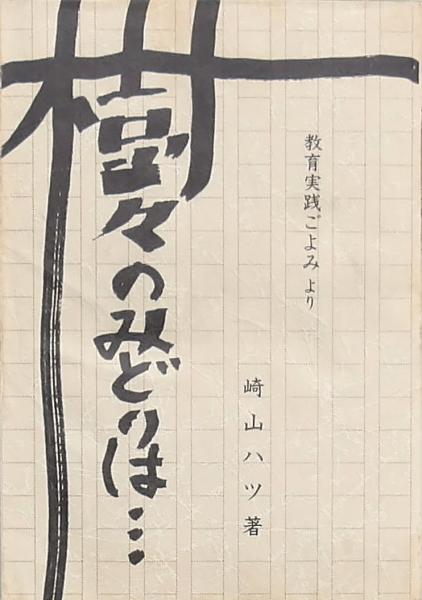 教育実践ごよみより
樹々のみどりは…
崎山ハツ著